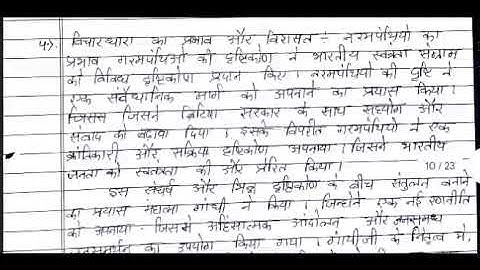 4➢. विचारधारा का प्रभाव और विरासत :- नरमपंथियो का
प्रभाव गरमपंथिओ की दृष्टिकोण ने भारतीय स्वतंत्रता संग्राम
को विविध दृष्टिकोण प्रदान किए। नरमपंथियो की दृष्टि ने
एक संवैधानिक मार्ग को अपनाने का प्रयास किया।
जिसने ब्रिटिश सरकार के साथ सहयोग और
संवाद को बढ़ावा दिया। इसके विपरीत गरमपंथियो ने एक
क्रांतिकारी और सक्रिय दृष्टिकोण अपनाया। जिसने भारतीय
जनता को स्वतंत्रता की और प्रेरित किया।
10 / 23
इस संघर्ष और भिन्न दृष्टिकोण के बीच संतुलन बनाने
का प्रयास महात्मा गांधी ने किया। जिन्होंने एक नई रणनीति
को अपनाया जिससे अहिंसात्मक आंदोलन और
का उपयोग किया गया। गांधीजी के नेतृत्व मे,